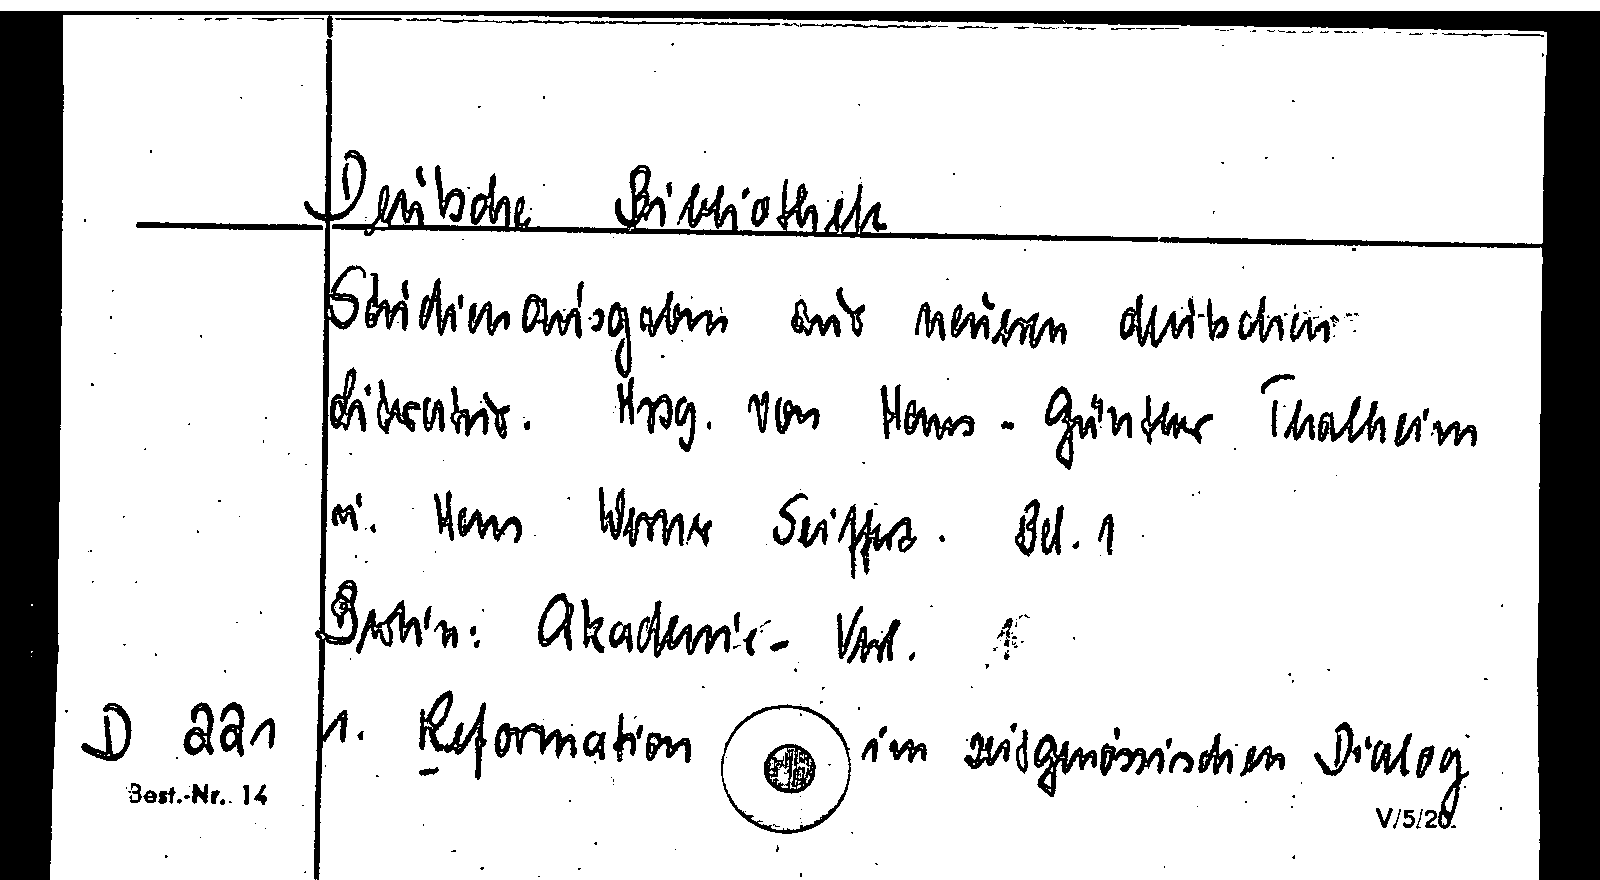 Deutsche Bibliothek
Studienausgaben zur neueren deutschen
Literatur. Hrsg. von Hans-Günther Thalheim
u. Hans Werner Seiffert. Bd. 1
Berlin: Akademie-Verl.
D 221 1. Reformation im zeitgenössischen Dialog
Best.-Nr. 14 V/5/20